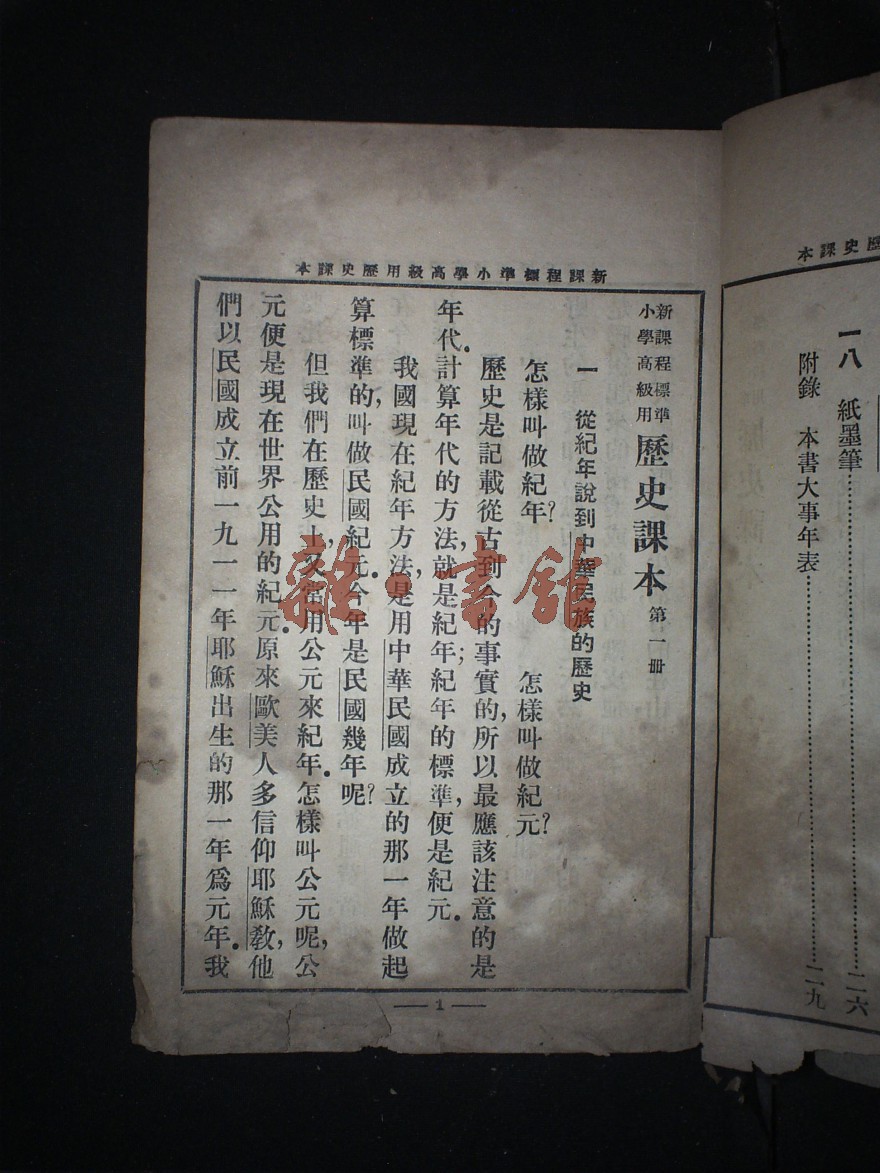 新課程標準小學高級用歷史課本
新課程標準
小學高級用
歷史課本 第一冊
一 從紀年說到中華民族的歷史
怎樣叫做紀年? 怎樣叫做紀元?
歷史是記載從古到今的事實的,所以最應該注意的是
年代.計算年代的方法,就是紀年;紀年的標準,便是紀元.
我國現在紀年方法,是用中華民國成立的那一年做起
算標準的,叫做民國紀元.今年是民國幾年呢?
但我們在歷史上,又常用公元來紀年.怎樣叫公元呢,公
元便是現在世界公用的紀元.原來歐美人多信仰耶穌教,他
們以民國成立前一九一一年耶穌出生的那一年爲元年.我
1
歷史課本
一八 紙墨筆……二六
附錄 本書大事年表……二九
雜·書館